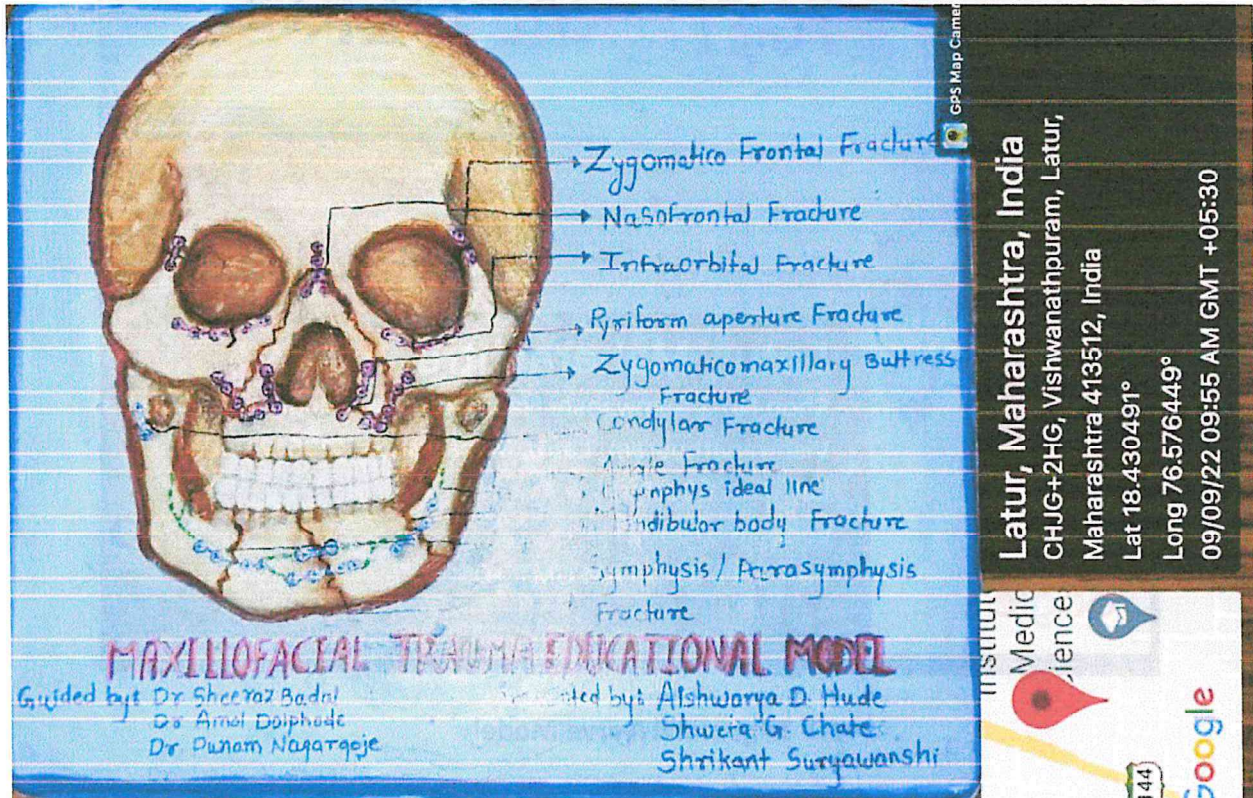 Zygomatico Frontal Fracture
Nasofrontal Fracture
Infraorbital Fracture
Pyriform aperture Fracture
Zygomaticomaxillary Buttress
Fracture
Condylar Fracture
Fracture
ideal line
body Fracture
Symphysis / Parasymphysis
Fracture
MAXILLOFACIAL TRAUMA EDUCATIONAL MODEL
Guided by: Dr Sheeraz Badal
Dr Amol Doiphode
Dr Punam Nagargoje
by: Aishwarya D. Hude
Shweta G. Chate
Shrikant Suryawanshi
GPS Map Camer
Latur, Maharashtra, India
CHJG+2HG, Vishwanathpuram, Latur,
Maharashtra 413512, India
Lat 18.430491°
Long 76.576449°
09/09/22 09:55 AM GMT +05:30
Institut
Medic
cience
144
Google